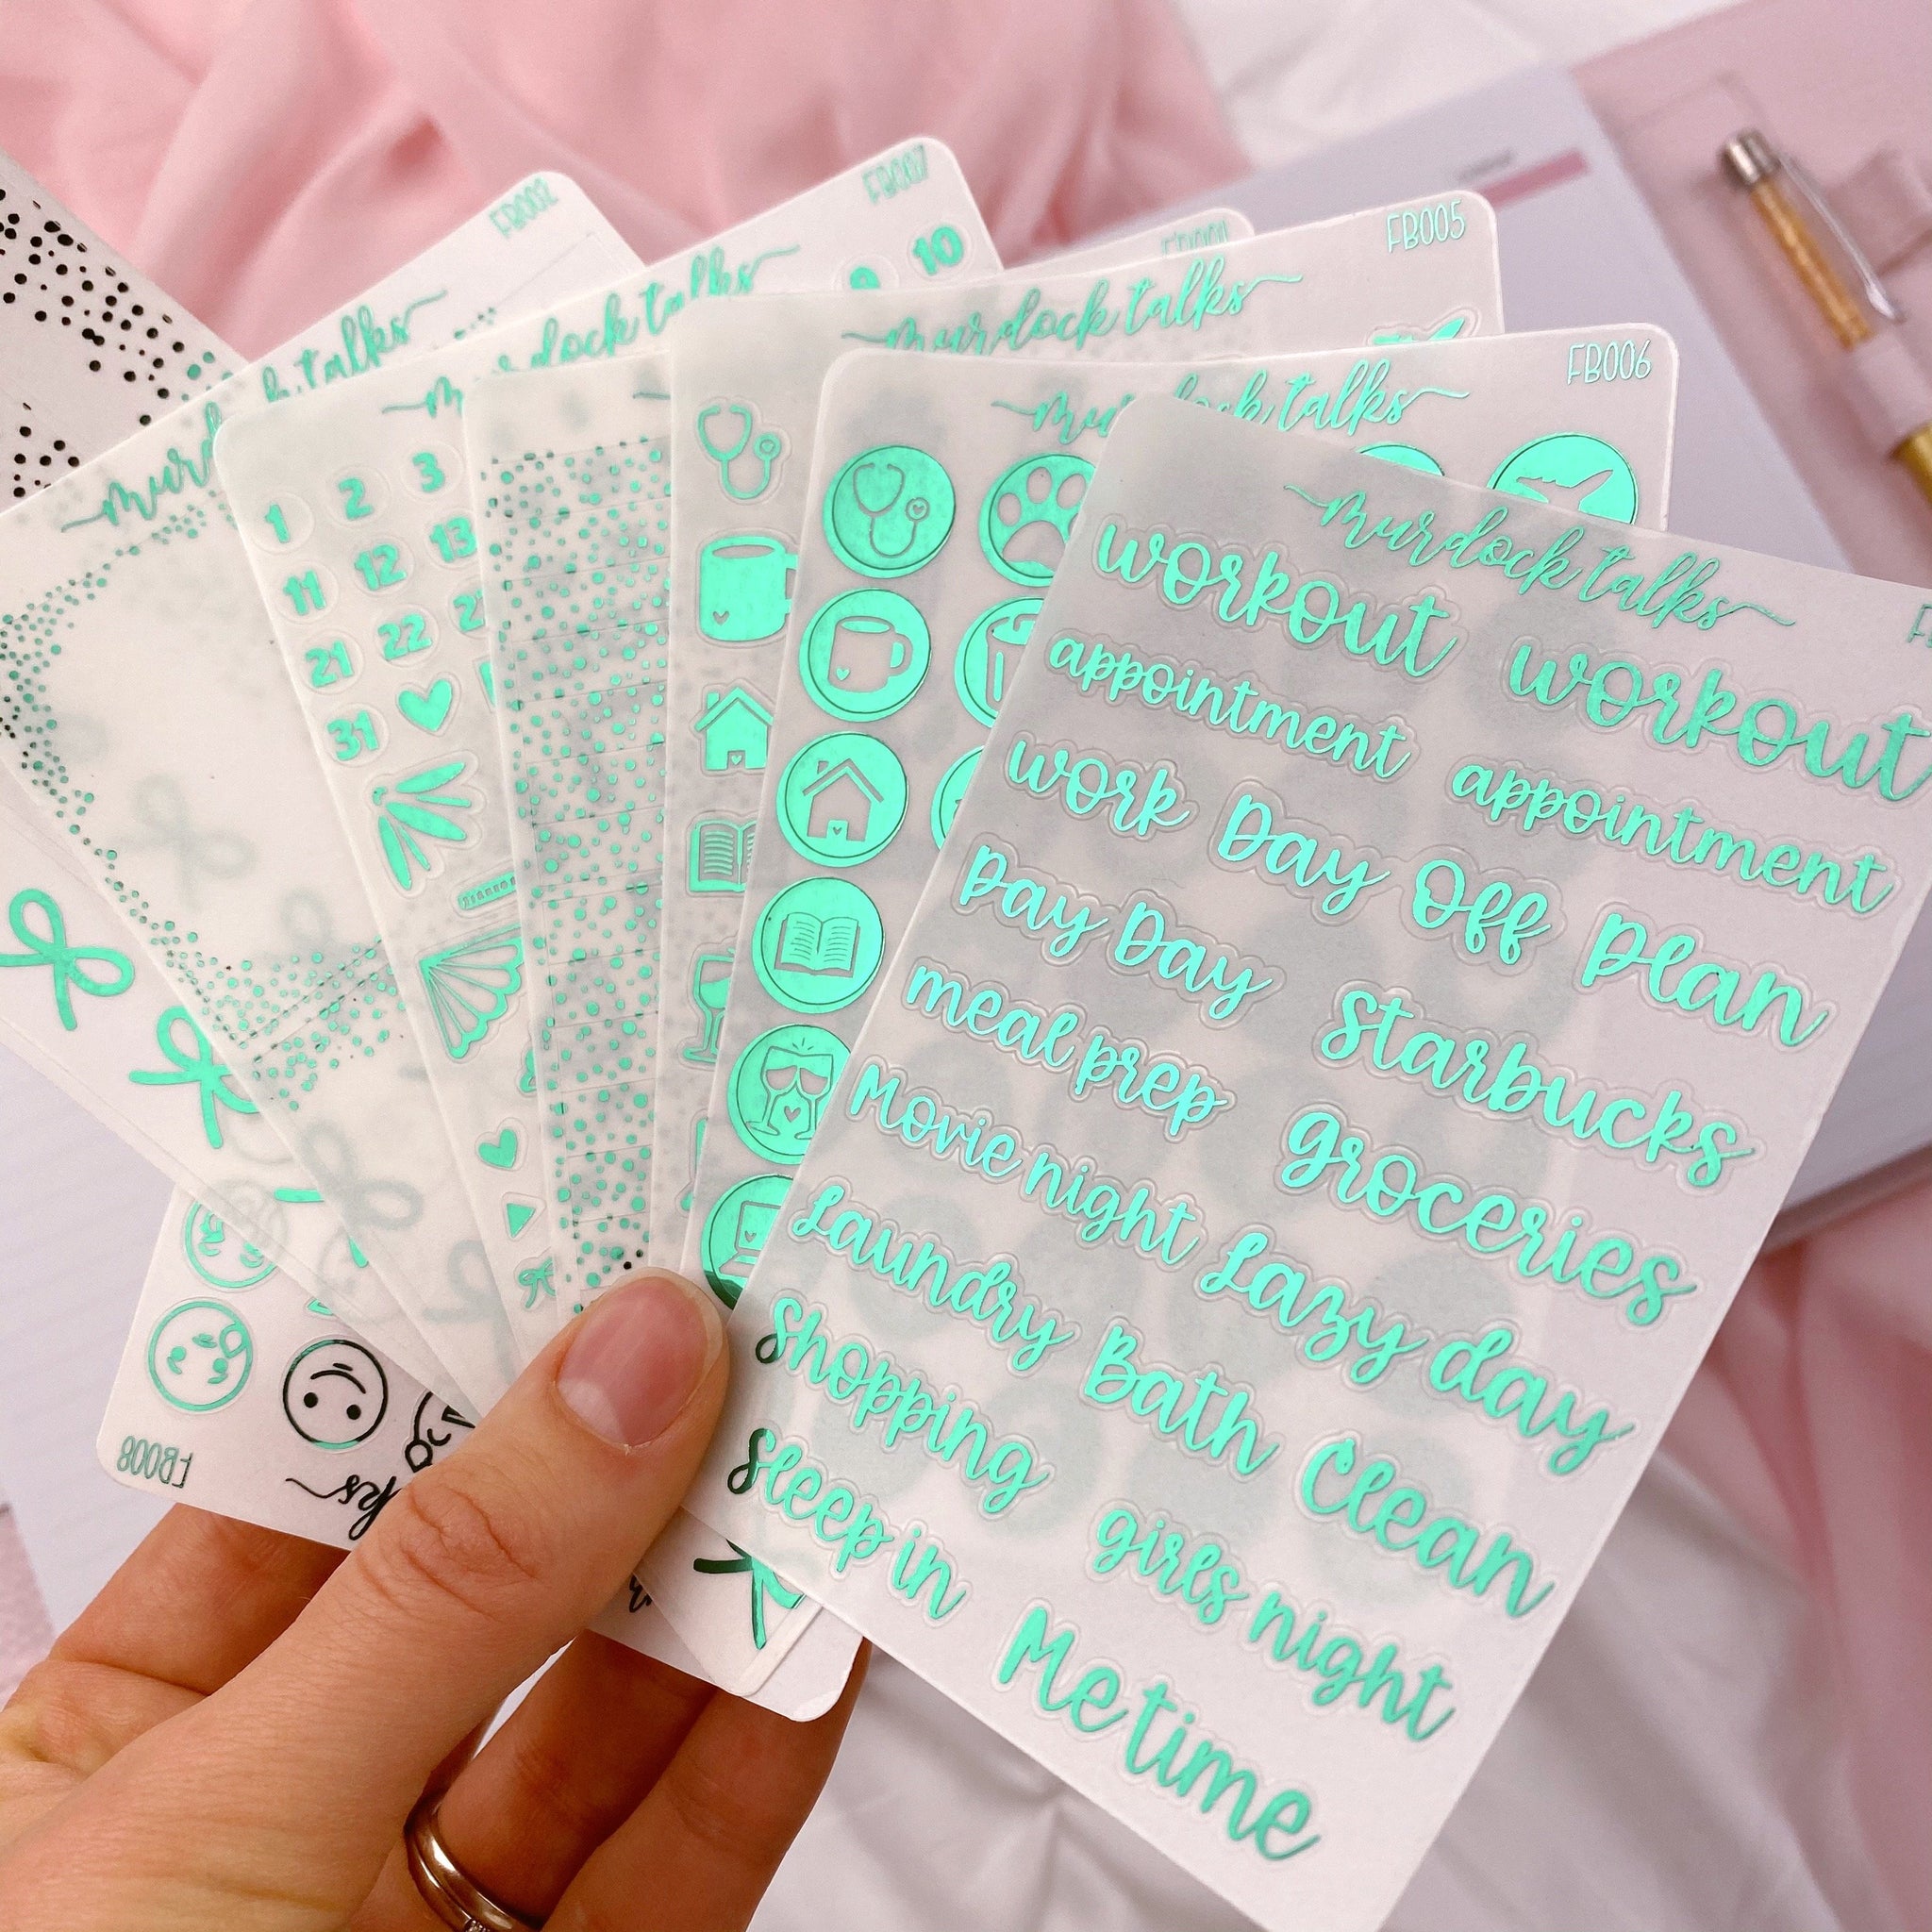 FB002
talks
FB007
murdock talks
10
1 2 3
11 12 13
21 22
31
FB005
murdock talks
FB006
talks
murdock talks
workout workout
appointment appointment
work Day Off plan
Pay Day Starbucks
meal prep groceries
Movie night Lazy day
Laundry Bath Clean
Shopping girls night
Sleep in Me time
FB008